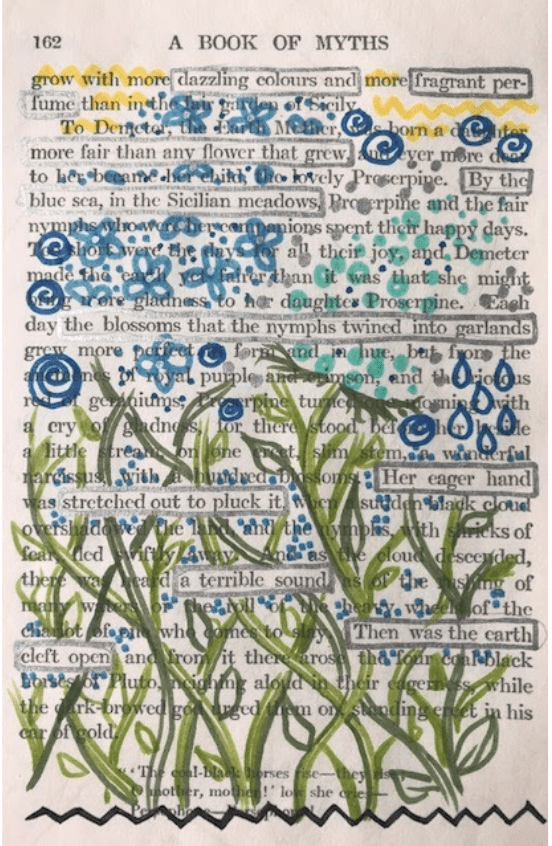 162 A BOOK OF MYTHS
grow with more dazzling colours and more fragrant per-
fume than in the fair garden of Sicily.
To Demeter, the Earth Mother, was born a daughter
more fair than any flower that grew, and ever more dear
to her became her child, the lovely Proserpine. By the
blue sea, in the Sicilian meadows, Proserpine and the fair
nymphs who were her companions spent their happy days.
Too short were the days for all their joy, and Demeter
made the earth yet fairer than it was that she might
bring more gladness to her daughter Proserpine. Each
day the blossoms that the nymphs twined into garlands
grew more perfect in form and in hue, but from the
anemones of royal purple and crimson, and the riotous
red of geraniums, Proserpine turned one morning with
a cry of gladness, for there stood before her beside
a little stream, on one erect, slim stem, a wonderful
narcissus, with a hundred blossoms. Her eager hand
was stretched out to pluck it, when a sudden black cloud
overshadowed the land, and the nymphs, with shrieks of
fear, fled swiftly away. And as the cloud descended,
there was heard a terrible sound, as of the rushing of
many waters or the roll of the heavy wheels of the
chariot of one who comes to slay. Then was the earth
cleft open, and from it there arose the four coal-black
horses of Pluto, neighing aloud in their eagerness, while
the dark-browed god urged them on, standing erect in his
car of gold.
"'The coal-black horses rise—they rise,
O mother, mother!' low she cries—
Persephone—Persephone!